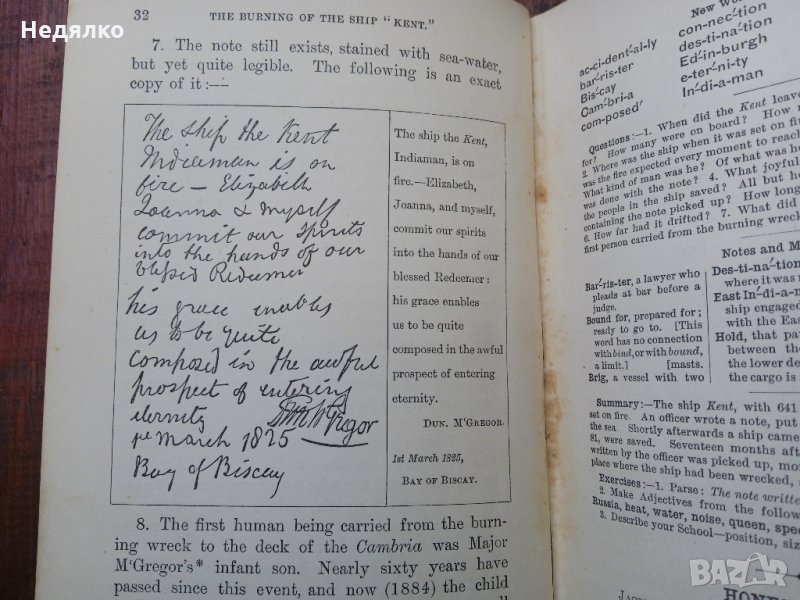 Недялко
32 THE BURNING OF THE SHIP "KENT."
7. The note still exists, stained with sea-water,
but yet quite legible. The following is an exact
copy of it:—
The ship the Kent
Indiaman is on
fire — Elizabeth
Joanna & myself
commit our spirits
into the hands of our
blessed Redeemer
his grace enables
us to be quite
composed in the awful
prospect of entering
eternity
1st March 1825
Bay of Biscay
The ship the Kent,
Indiaman, is on
fire.—Elizabeth,
Joanna, and myself,
commit our spirits
into the hands of our
blessed Redeemer:
his grace enables
us to be quite
composed in the awful
prospect of entering
eternity.
DUN. M'GREGOR.
1st March 1825,
BAY OF BISCAY.
8. The first human being carried from the burn-
ing wreck to the deck of the Cambria was Major
M'Gregor's* infant son. Nearly sixty years have
passed since this event, and now (1884) the child
New Wo
ac-ci-dent́-al-ly
baŕ-ris-ter
Biś-cay
Caḿ-bri-a
com-poseď
con-nec̋-tion
des-ti-ná-tion
Ed́-in-burgh
e-teŕ-ni-ty
Iń-di-a-man
Questions:—1. When did the Kent leave
for? How many were on board? How
2. Where was the ship when it was set on fire
was the fire expected every moment to reach
What kind of man was he? Of what was he
was done with the note? 4. What joyful
the people in the ship saved? All but
containing the note picked up? How long
6. How far had it drifted? 7. What did
first person carried from the burning wreck
Notes and M
Baŕ-ris-ter, a lawyer who
pleads at bar before a
judge.
Bound for, prepared for;
ready to go to. [This
word has no connection
with bind, or with bound,
a limit.] [masts.
Brig, a vessel with two
Des-ti-ná-tion
where it was
East Iń-di-a-m
ship engaged
with the East
Hold, that par
between the
the lower de
the cargo is
Summary:—The ship Kent, with 641
set on fire. An officer wrote a note, put
the sea. Shortly afterwards a ship came
81, were saved. Seventeen months after
written by the officer was picked up, mo
place where the ship had been wrecked,
Exercises:—1. Parse: The note written
2. Make Adjectives from the following
Russia, heat, water, noise, queen, spee
3. Describe your School—position, siz
HONE
BAZAR
bg